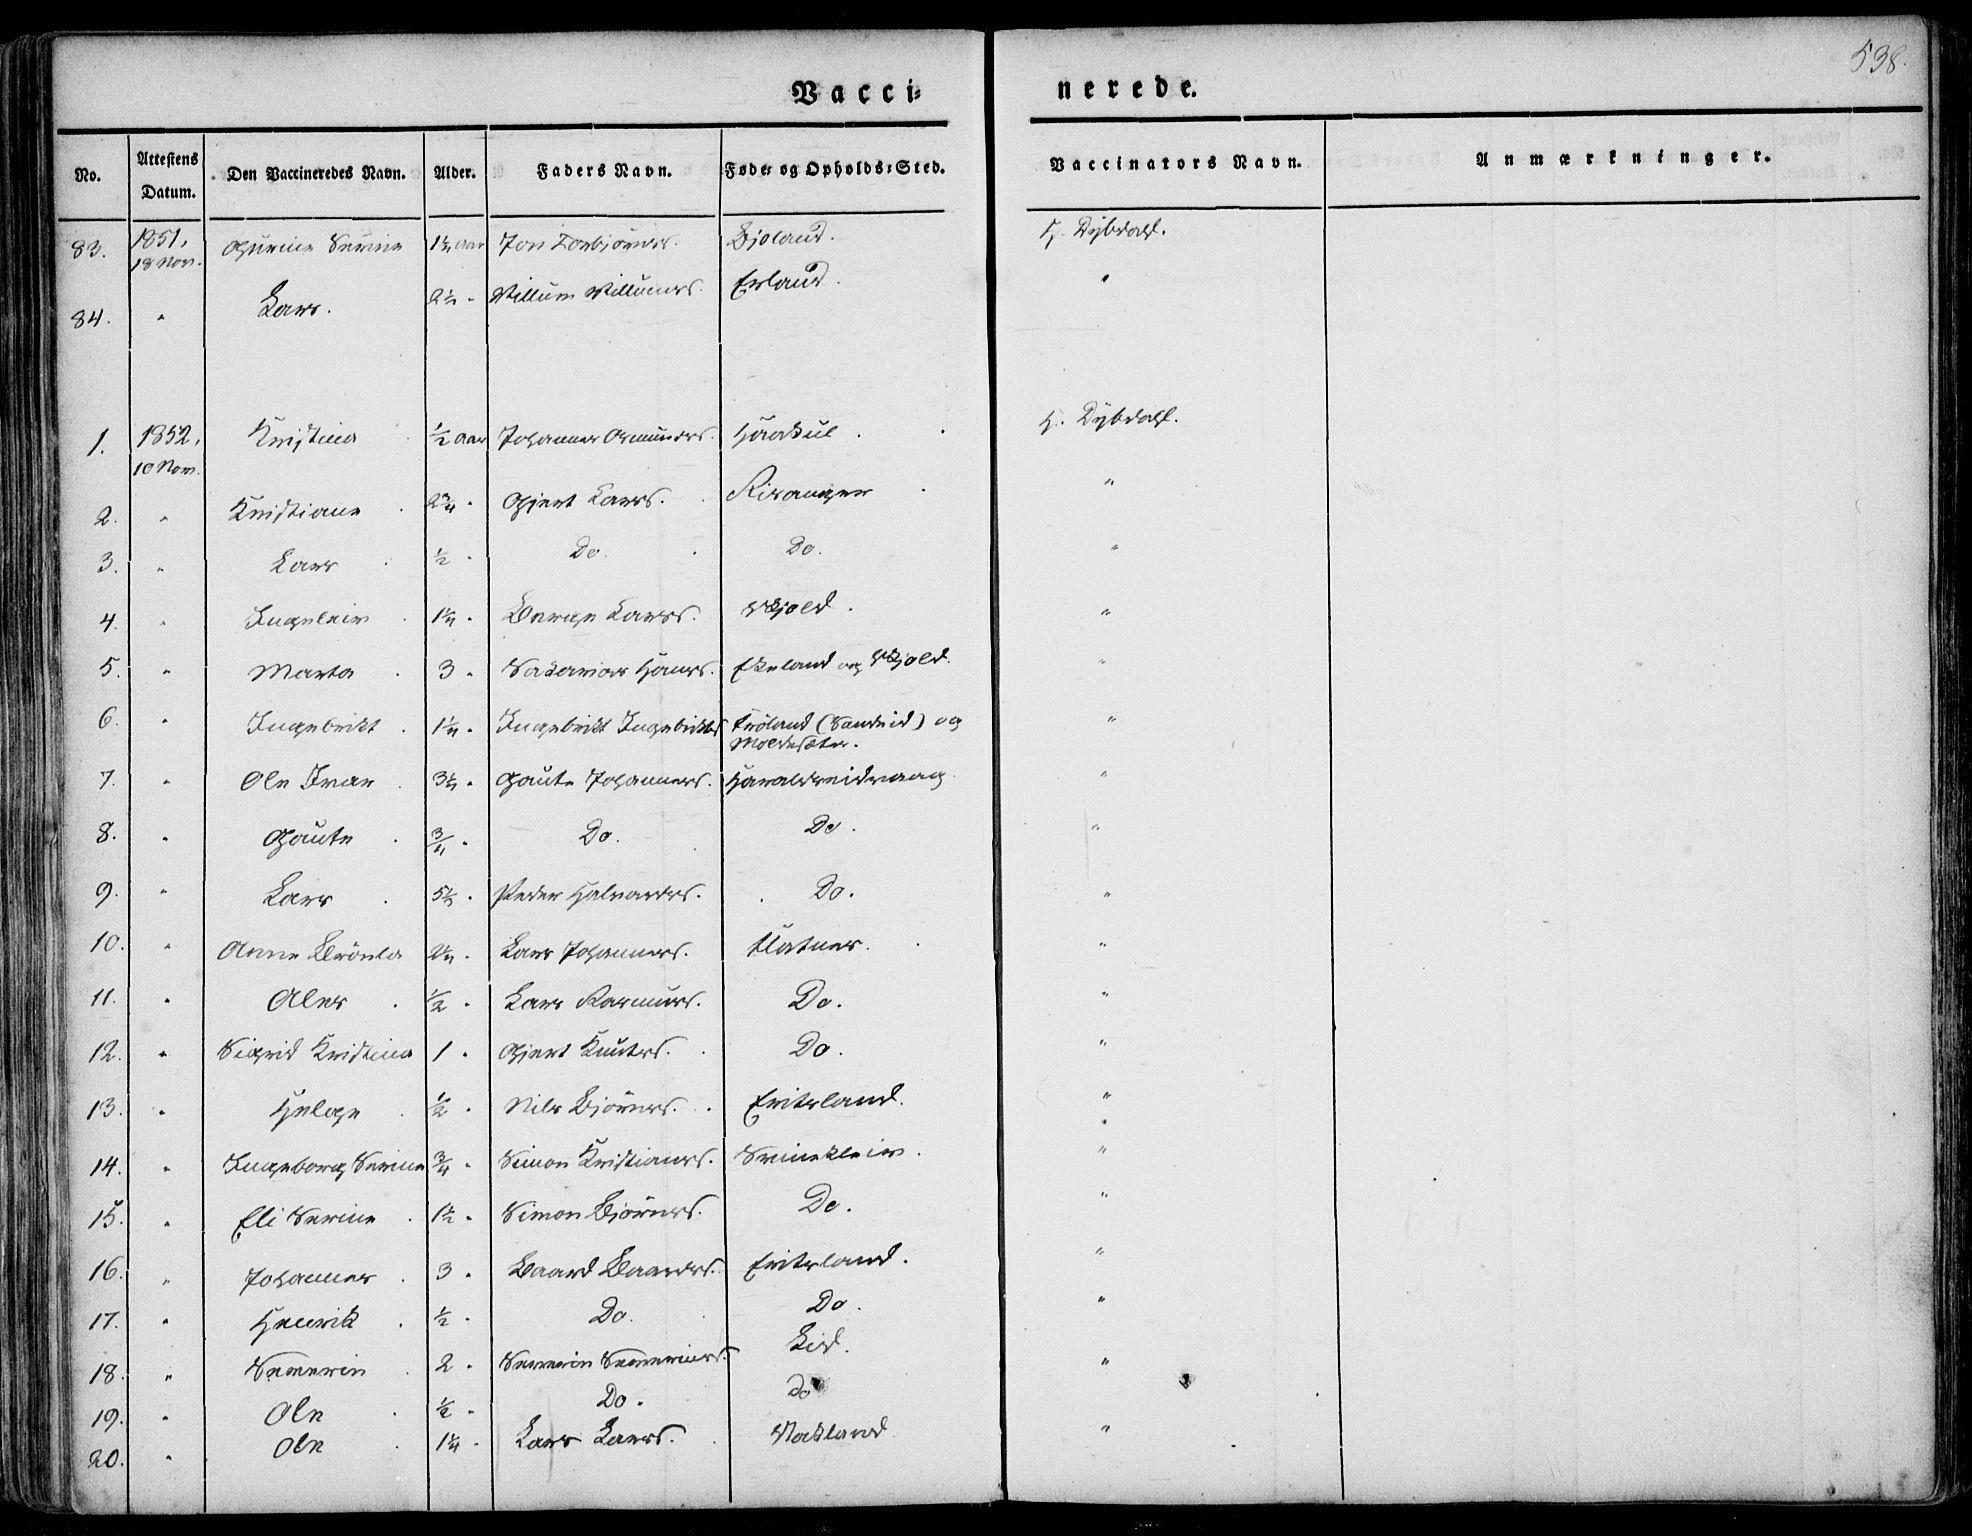 538.
Vacci-
nerede.
No. | Attestens Datum. | Den Vaccineredes Navn. | Alder. | Faders Navn. | Føde- og Opholds-Sted. | Vaccinators Navn. | Anmærkninger.
83. | 1851, 18 Nov. | Gurine Serine | aar | Jon Torbjörns. | Bjoland. | H. Dybdahl.
84. | " | Lars. | 2½ " | Villum Villums. | Erland. | "
1. | 1852, 10 Nov. | Kristina | ½ aar | Johannes Osmunds. | Haakul. | H. Dybdahl.
2. | " | Kristiane | 2¾ " | Gjert Lars. | Risanger | "
3. | " | Lars | ½ " | Do. | Do. | "
4. | " | Ingeleiv | 1¼ " | Børge Lars. | Skjold. | "
5. | " | Marta | 3 " | Sakarias Hans. | Ekeland og Skjold. | "
6. | " | Ingebrikt | 1¼ " | Ingebrikt Ingebrikts | Fröland (Sandeid) og Moldesæter. | "
7. | " | Ole Ivar | " | Gaute Johannes. | Haraldseidvaag. | "
8. | " | Gaute | ¾ " | Do. | Do. | "
9. | " | Lars | 5½ " | Peder Halvards. | Do. | "
10. | " | Anne | " | Lars Johannes. | Utatnes. | "
11. | " | Ales | ½ " | Lars Rasmus. | Do. | "
12. | " | Sigrid Kristina | 1 " | Gjert Knuts. | Do. | "
13. | " | Helge | ½ " | Nils Bjørns. | Eritsland. | "
14. | " | Ingeborg Serine | ¾ " | Simon Kristians. | Svinekleiv. | "
15. | " | Eli Serine | 1½ " | Simon Bjørns. | Do. | "
16. | " | Johannes | 3 " | Baard Baards. | Eritsland. | "
17. | " | Henrik | ½ " | Do. | Do. | "
18. | " | Severin | 2 " | Severin Severins. | Eid. | "
19. | " | Ole | ½ " | Do. | do
20. | " | Ole | 1¼ " | Lars Lars. | Vatland | "